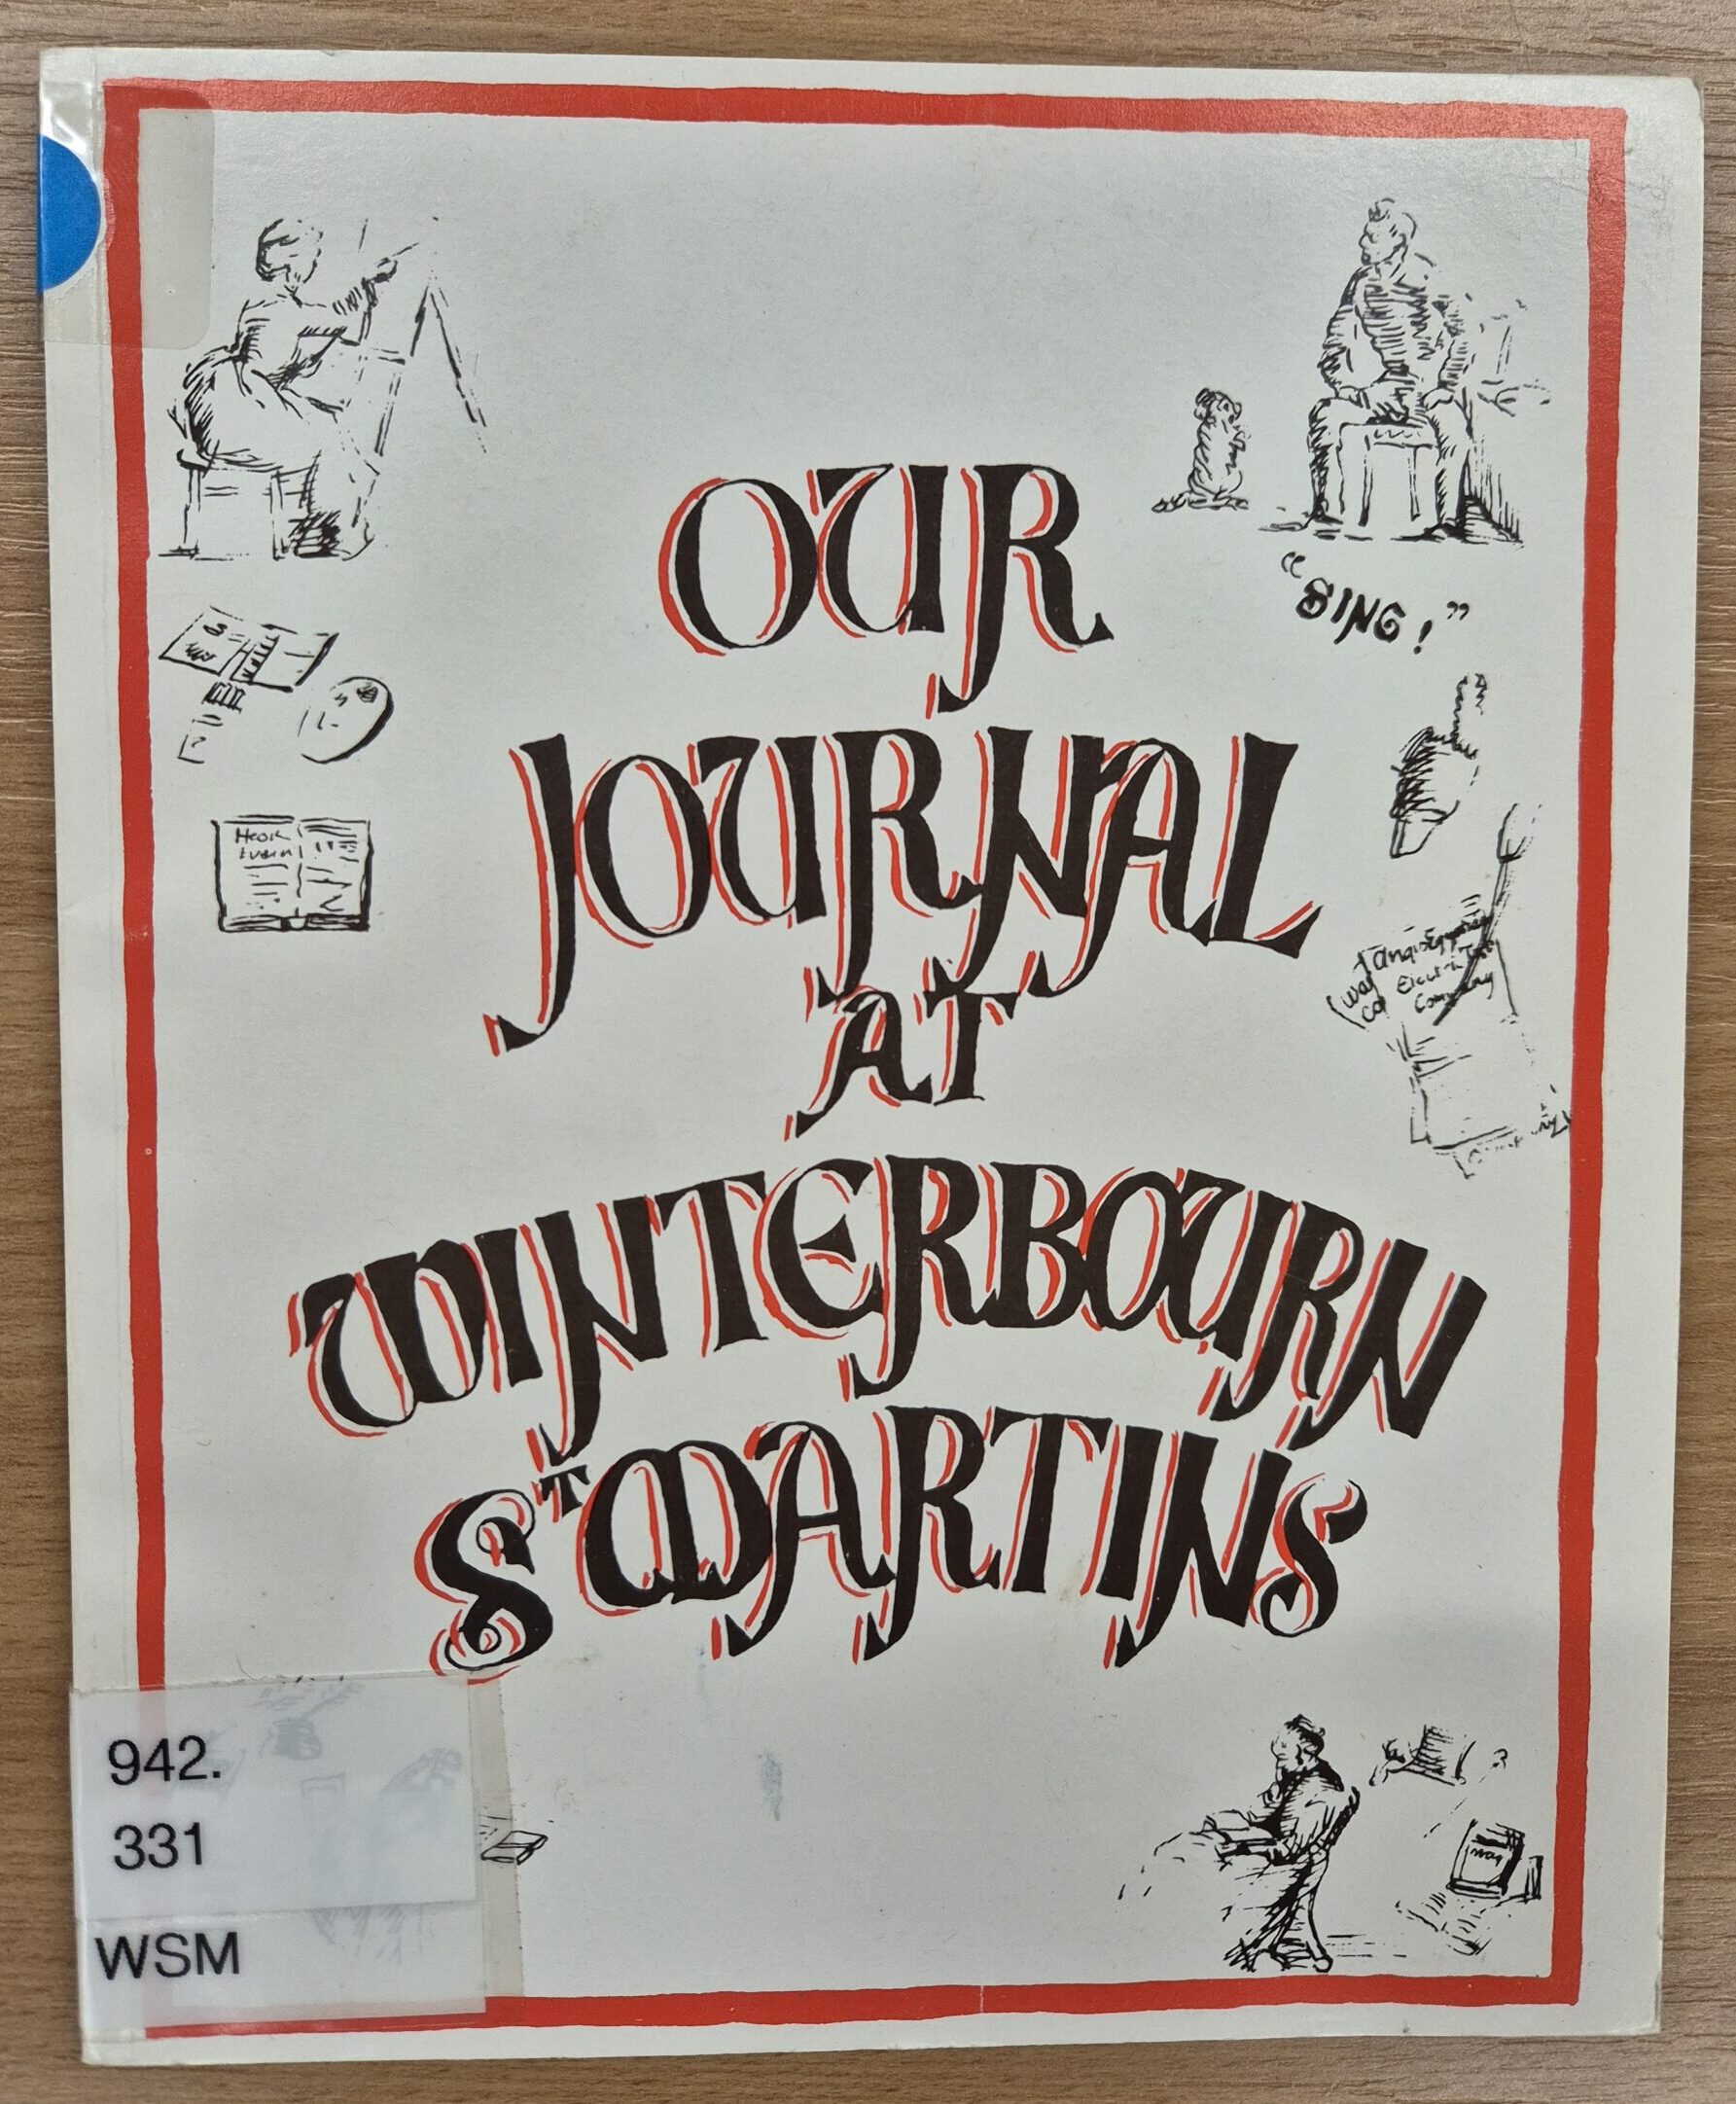 OUR
JOURNAL
AT
WINTERBOURN
ST MARTINS
"SING!"
Company
942.
331
WSM